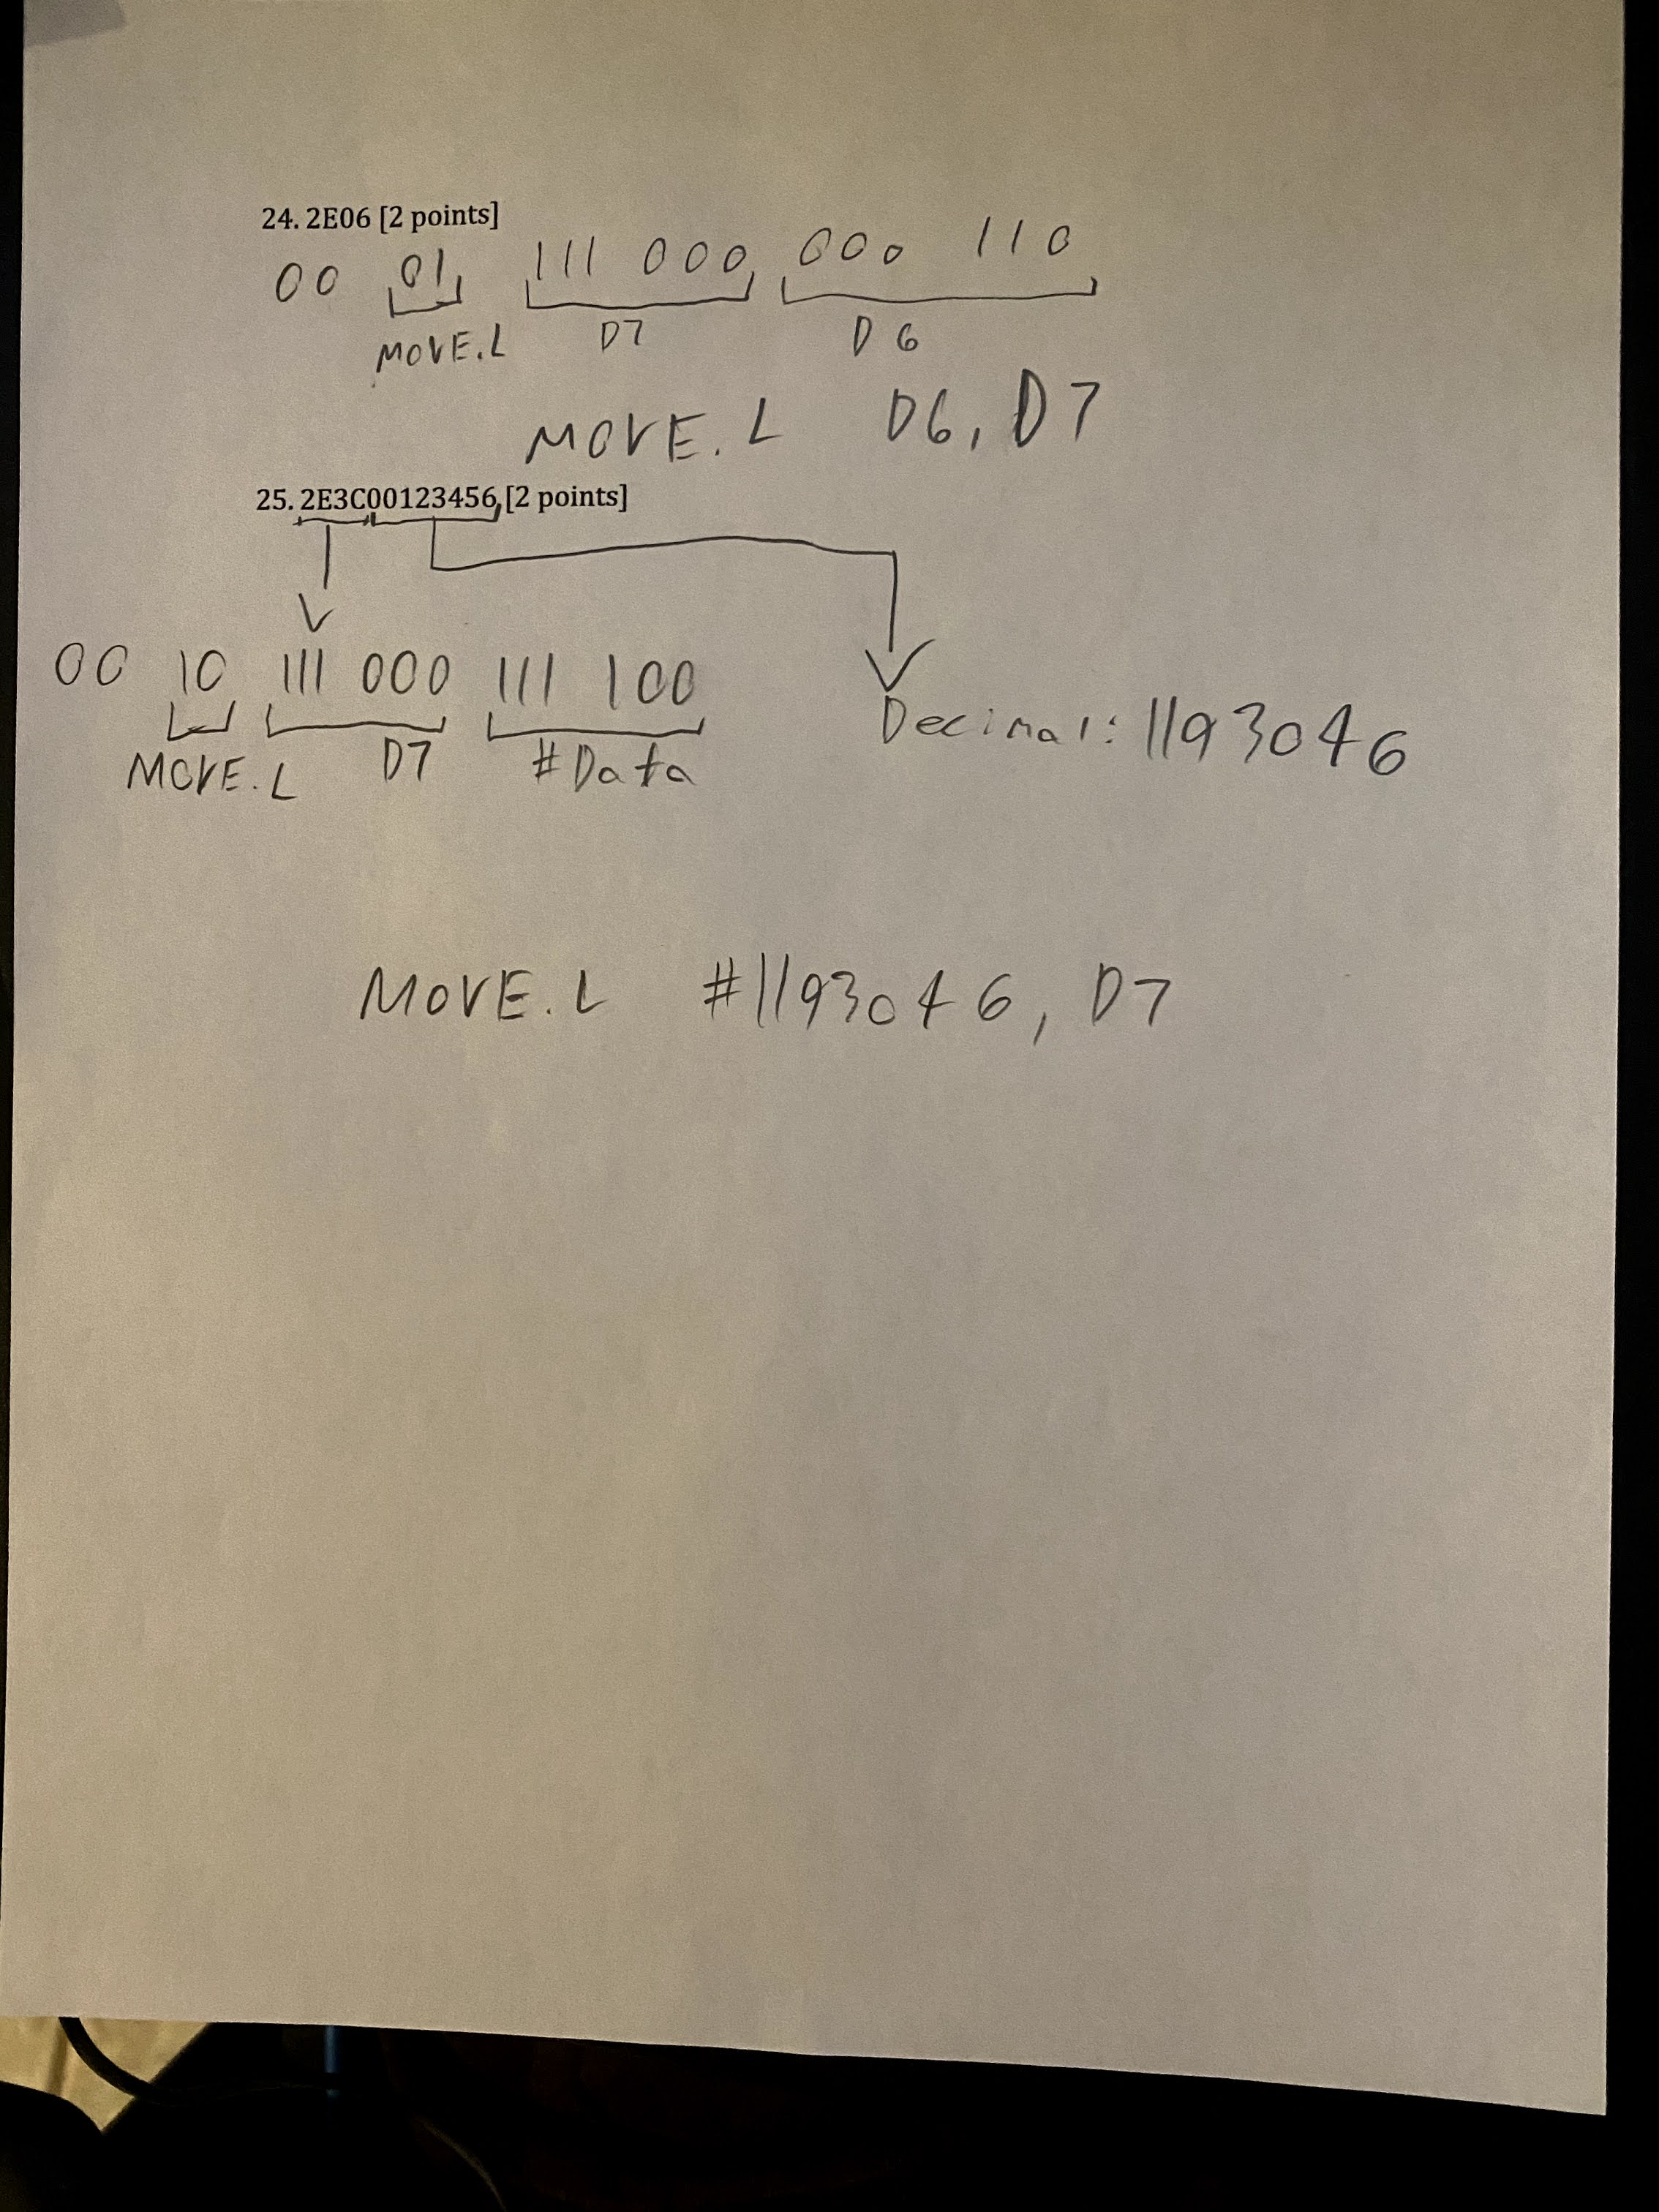 24. 2E06 [2 points]
00 01 111 000 000 110
MOVE.L D7 D6
MOVE.L D6, D7
25. 2E3C00123456 [2 points]
00 10 111 000 111 100
MOVE.L D7 #Data
Decimal: 1193046
MOVE.L #1193046, D7